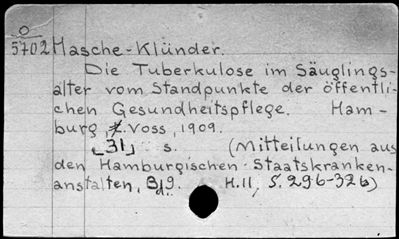 O
5702 Hasche-Klünder.
Die Tuberkulose im Säuglings-
alter vom Standpunkte der öffentli-
chen Gesundheitspflege. Ham-
burg, L. Voss, 1909.
[31] s. (Mitteilungen aus
den Hamburgischen Staatskranken-
anstalten, Bd9. H.11, S. 296-326)